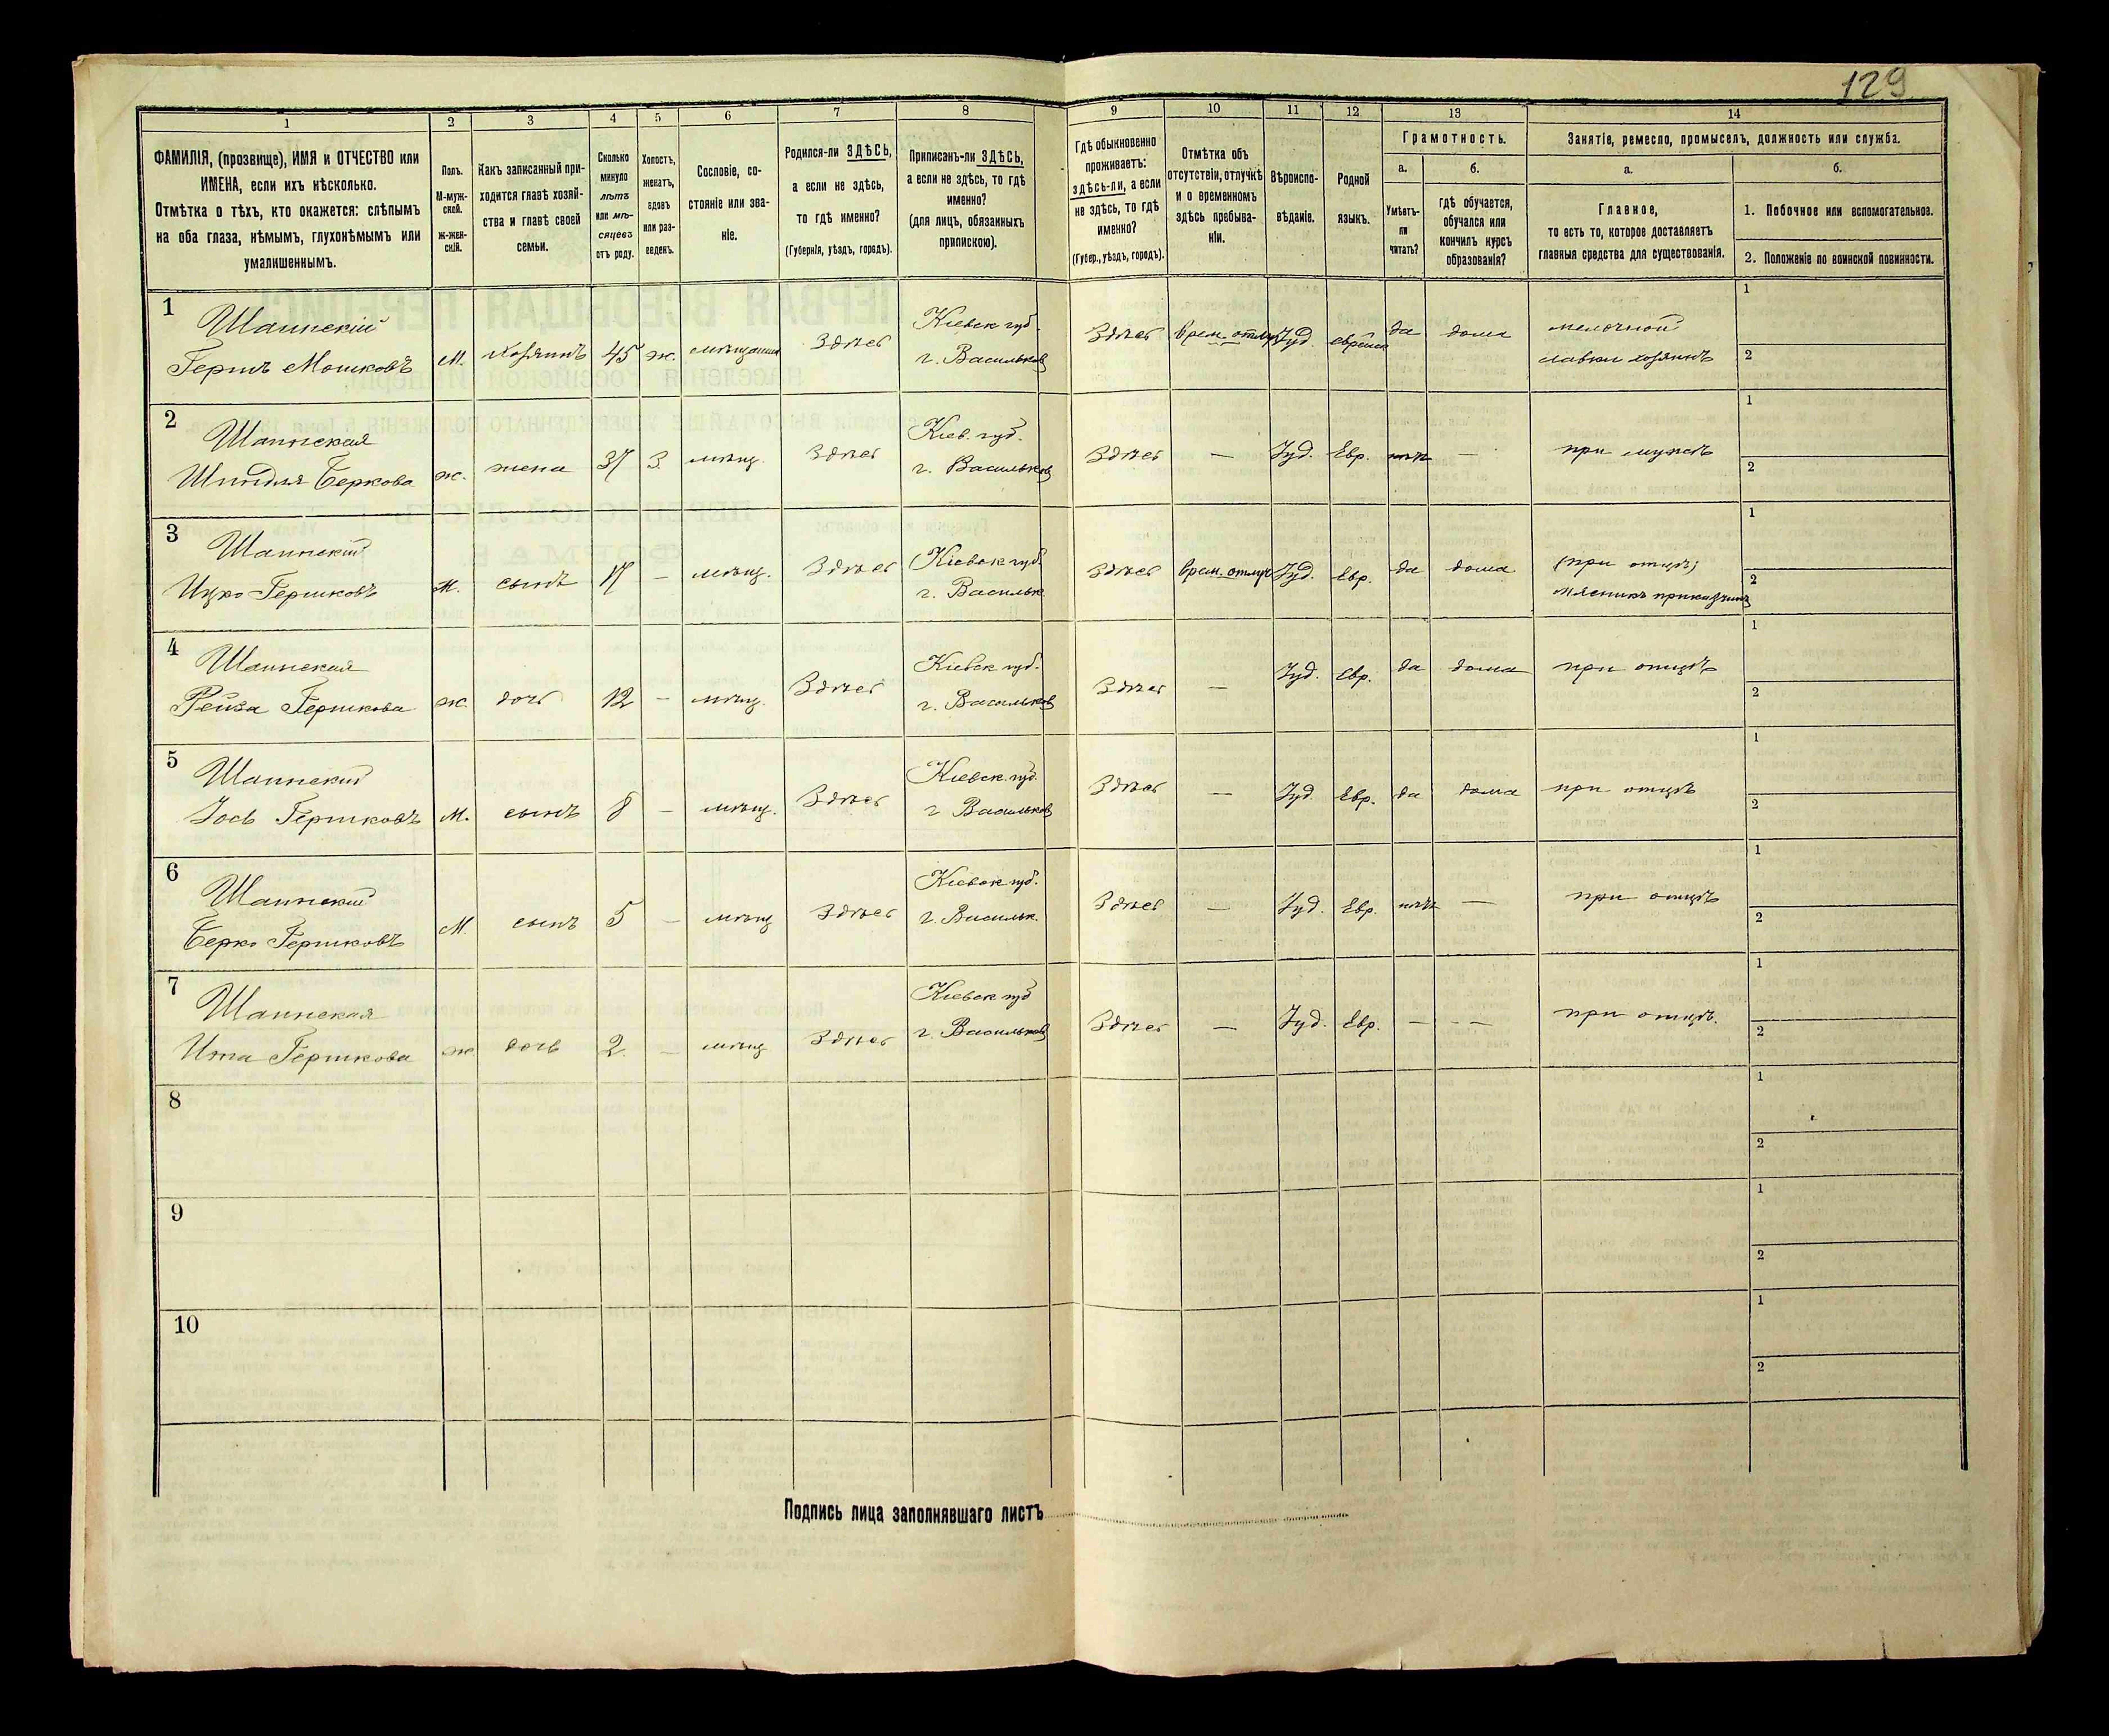 129
1
2
3
4
5
6
7
8
9
10
11
12
13
14
ФАМИЛІЯ, (прозвище), ИМЯ и ОТЧЕСТВО или
ИМЕНА, если ихъ нѣсколько.
Отмѣтка о тѣхъ, кто окажется: слѣпымъ
на оба глаза, нѣмымъ, глухонѣмымъ или
умалишеннымъ.
Полъ.
М-муж-
ской.
ж-жен-
скій.
Какъ записанный при-
ходится главѣ хозяй-
ства и главѣ своей
семьи.
Сколько
минуло
лѣтъ
или мѣ-
сяцевъ
отъ роду.
Холостъ,
женатъ,
вдовъ
или раз-
веденъ.
Сословіе, со-
стояніе или зва-
ніе.
Родился-ли ЗДѢСЬ,
а если не здѣсь,
то гдѣ именно?
(Губернія, уѣздъ, городъ).
Приписанъ-ли ЗДѢСЬ,
а если не здѣсь, то гдѣ
именно?
(для лицъ, обязанныхъ
припискою).
Гдѣ обыкновенно
проживаетъ:
здѣсь-ли, а если
не здѣсь, то гдѣ
именно?
(Губер., уѣздъ, городъ).
Отмѣтка объ
отсутствіи, отлучкѣ
и о временномъ
здѣсь пребыва-
ніи.
Вѣроиспо-
вѣданіе.
Родной
языкъ.
Грамотность.
а.
Умѣетъ-
ли
читать?
б.
гдѣ обучается,
обучался или
кончилъ курсъ
образованія?
Занятіе, ремесло, промыселъ, должность или служба.
а.
Главное,
то есть то, которое доставляетъ
главныя средства для существованія.
б.
1. Побочное или вспомогательное.
2. Положеніе по воинской повинности.
1
Шаинскій
Гершъ Мошковъ
М. хозяинъ 45 ж. мѣщанин Здѣсь
Кіевск губ.
г. Васильков
Здѣсь Врем. отлуч Іуд. еврейск да дома
мелочной
лавки хозяинъ
1
2
2
Шаинская
Шиндля Беркова
ж. жена 37 З. мѣщ. Здѣсь
Кіев. губ.
г. Васильков
Здѣсь — Іуд. Евр. нѣтъ — при мужѣ
1
2
3
Шаинскій
Ицко Гершковъ
М. сынъ 17 — мѣщ. Здѣсь
Кіевск губ.
г. Васильк
Здѣсь Врем. отлуч Іуд. Евр. да дома
(при отцѣ)
мясникъ приказчикъ
1
2
4
Шаинская
Рейза Гершкова
ж. дочь 12 — мѣщ. Здѣсь
Кіевск губ.
г. Васильков
Здѣсь — Іуд. Евр. да дома при отцѣ
1
2
5
Шаинскій
Іось Гершковъ
М. сынъ 8 — мѣщ. Здѣсь
Кіевск. губ.
г Васильков
Здѣсь — Іуд Евр. да дома при отцѣ
1
2
6
Шаинскій
Берко Гершковъ
М. сынъ 5 — мѣщ Здѣсь
Кіевск губ.
г. Васильк.
Здѣсь — Іуд. Евр. нѣтъ — при отцѣ
1
2
7
Шаинская
Ита Гершкова
ж. дочь 2. — мѣщ Здѣсь
Кіевск губ
г. Васильков
Здѣсь — Іуд. Евр. — — при отцѣ.
1
2
8
1
2
9
1
2
10
1
2
Подпись лица заполнявшаго листъ